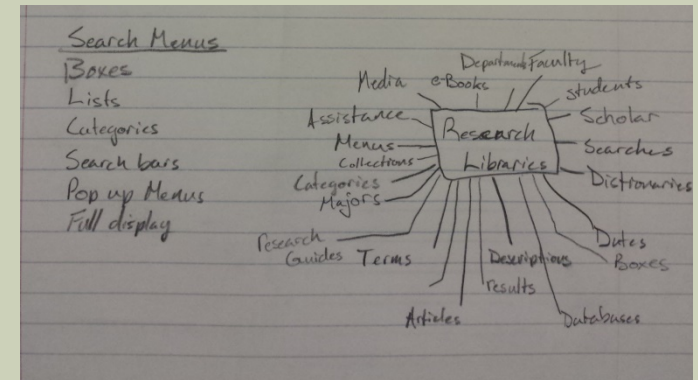 Search Menus
Boxes
Lists
Categories
Search bars
Pop up Menus
Full display
Research
Libraries
Media
e-Books
Departments
Faculty
students
Scholar
Searches
Dictionaries
Dates
Boxes
Databases
Descriptions
results
Articles
Terms
research
Guides
Majors
Categories
Collections
Menus
Assistance